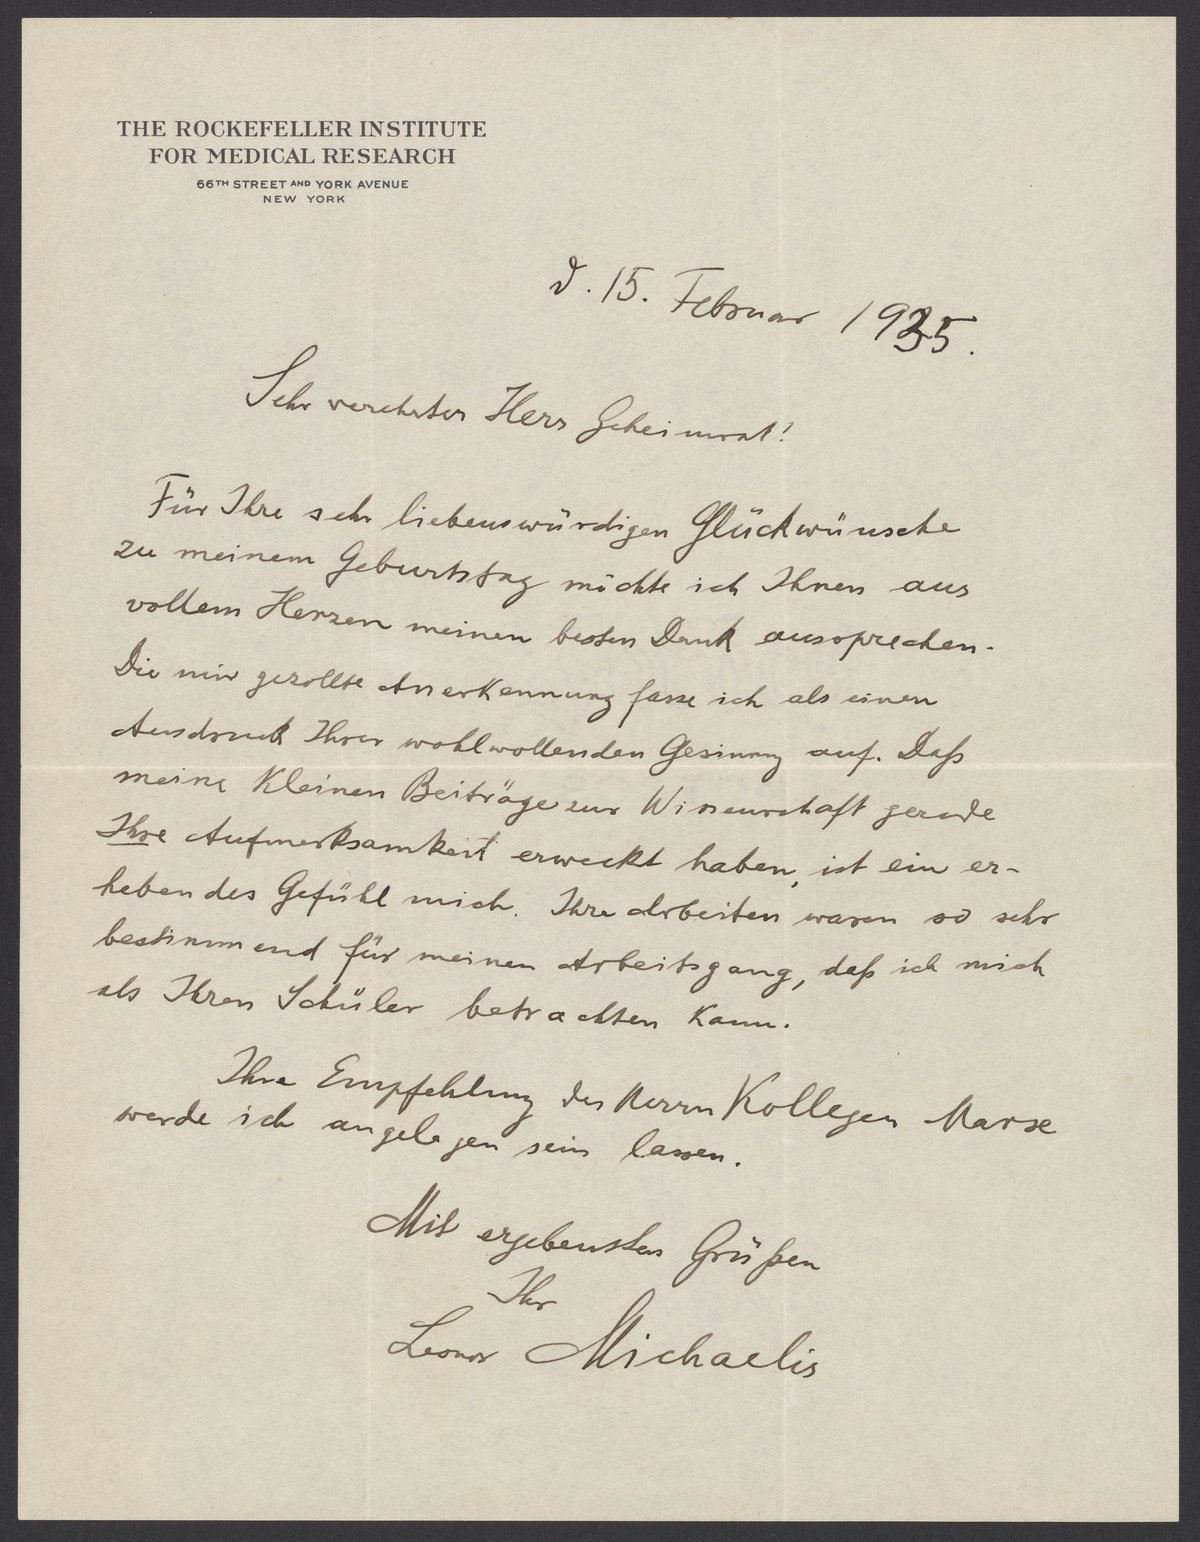 THE ROCKEFELLER INSTITUTE
FOR MEDICAL RESEARCH
66TH STREET AND YORK AVENUE
NEW YORK
d. 15. Februar 1935.
Sehr verehrter Herr Geheimrat!
Für Ihre sehr liebenswürdigen Glückwünsche
zu meinem Geburtstag möchte ich Ihnen aus
vollem Herzen meinen besten Dank aussprechen.
Die mir gezollte Anerkennung fasse ich als einen
Ausdruck Ihrer wohlwollenden Gesinnung auf. Daß
meine kleinen Beiträge zur Wissenschaft gerade
Ihre Aufmerksamkeit erweckt haben, ist ein er-
hebendes Gefühl mich. Ihre Arbeiten waren so sehr
bestimmend für meinen Arbeitsgang, daß ich mich
als Ihren Schüler betrachten kann.
Ihre Empfehlung des Herrn Kollegen
werde ich angelegen sein lassen.
Mit ergebensten Grüßen
Ihr
Leonor Michaelis